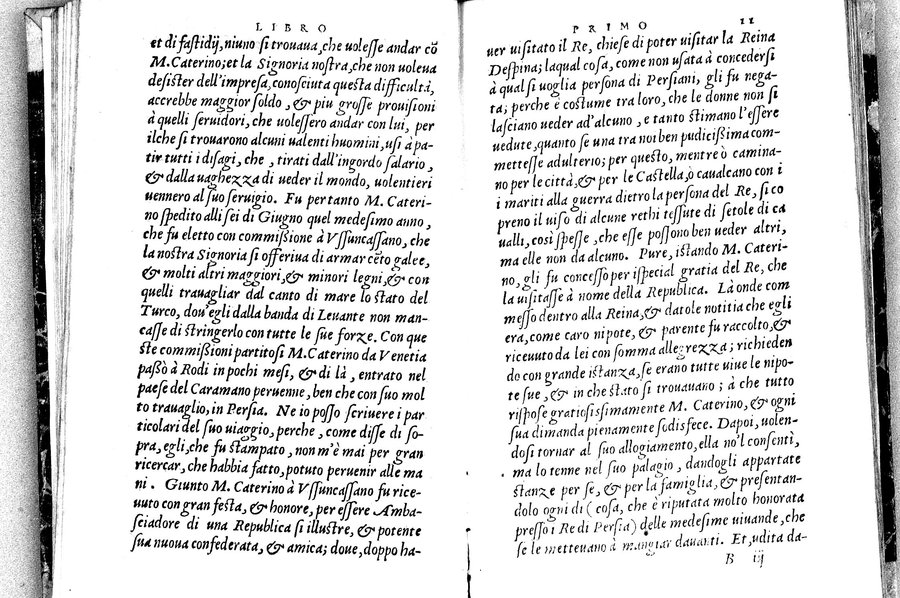 LIBRO
et di fastidij, niuno si trouaua, che uolesse andar cõ
M. Caterino; et la Signoria nostra, che non uoleua
desister dell'impresa, conosciuta questa difficultà,
accrebbe maggior soldo, & piu grosse prouisioni
à quelli seruidori, che uolessero andar con lui, per
ilche si trouarono alcuni ualenti huomini, usi à pa-
tir tutti i disagi, che, tirati dall'ingordo salario,
& dalla uaghezza di ueder il mondo, uolentieri
uennero al suo seruigio. Fu pertanto M. Cateri-
no spedito alli sei di Giugno quel medesimo anno,
che fu eletto con commißione à Vssuncassano, che
la nostra Signoria si offeriua di armar cẽto galee,
& molti altri maggiori, & minori legni, & con
quelli trauagliar dal canto di mare lo stato del
Turco, dou'egli dalla banda di Leuante non man-
casse di stringerlo con tutte le sue forze. Con que
ste commißioni partitosi M. Caterino da Venetia
passò à Rodi in pochi mesi, & di là, entrato nel
paese del Caramano peruenne, ben che con suo mol
to trauaglio, in Persia. Ne io posso scriuere i par
ticolari del suo uiaggio, perche, come disse di so-
pra, egli, che fu stampato, non m'è mai per gran
ricercar, che habbia fatto, potuto peruenir alle ma
ni. Giunto M. Caterino à Vssuncassano fu rice-
uuto con gran festa, & honore, per essere Amba-
sciadore di una Republica si illustre, & potente
sua nuoua confederata, & amica; doue, doppo ha-
PRIMO 11
uer uisitato il Re, chiese di poter uisitar la Reina
Despina; laqual cosa, come non usata à concedersi
à qual si uoglia persona di Persiani, gli fu nega-
ta; perche è costume tra loro, che le donne non si
lasciano ueder ad'alcuno, e tanto stimano l'essere
uedute, quanto se una tra noi ben pudicißima com-
mettesse adulterio; per questo, mentre ò camina-
no per le città, & per le Castella, ò caualcano con i
i mariti alla guerra dietro la persona del Re, si co
preno il uiso di alcune rethi tessute di setole di ca
ualli, così spesse, che esse possono ben ueder altri,
ma elle non da alcuno. Pure, istando M. Cateri-
no, gli fu concesso per ispecial gratia del Re, che
la uisitasse à nome della Republica. Là onde com
messo dentro alla Reina, & datole notitia che egli
era, come caro nipote, & parente fu raccolto, &
riceuuto da lei con somma allegrezza; richieden
do con grande istanza, se erano tutte uiue le nipo-
te sue, & in che stato si trouauano; à che tutto
rispose gratiosissimamente M. Caterino, & ogni
sua dimanda pienamente sodisfece. Dapoi, uolen-
dosi tornar al suo allogiamento, ella no'l consentì,
ma lo tenne nel suo palagio, dandogli appartate
stanze per se, & per la famiglia, & presentan-
dolo ogni dì (cosa, che è riputata molto honorata
presso i Re di Persia) delle medesime uiuande, che
se le metteuano à mangiar dauanti. Et, udita da-
B iij